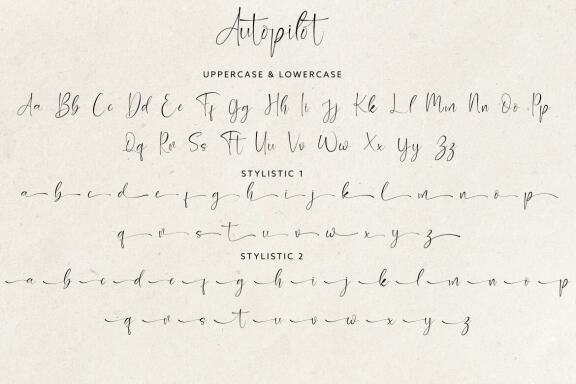 Autopilot
UPPERCASE & LOWERCASE
Aa Bb Cc Dd Ee Ff Gg Hh Ii Jj Kk Ll Mm Nn Oo Pp
Qq Rr Ss Tt Uu Vv Ww Xx Yy Zz
STYLISTIC 1
a b c d e f g h i j k l m n o p
q r s t u v w x y z
STYLISTIC 2
a b c d e f g h i j k l m n o p
q r s t u v w x y z